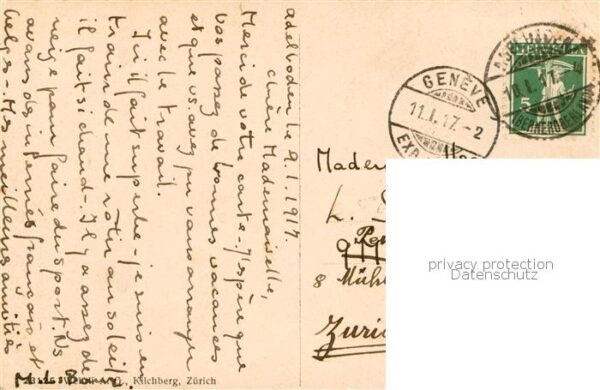 Adelboden le 9.1.1917.
Chère Mademoiselle,
Merci de votre carte - J'espère que
vos passez de bonnes vacances
et que vs. avez pu vous arranger
avec le travail.
Ici il fait superbe - je suis en
train de me rôtir au soleil
il fait si chaud - Il y a assez de
neige pour faire du sport. Ns
avons des internés français et
belges - Mes meilleures amitiés
M. L.
Kilchberg, Zürich
GENÈVE
11.I.17.-2
HELVETIA
5
10.I.17.
Madem
L.
8 Mühl
Zuri
privacy protection
Datenschutz